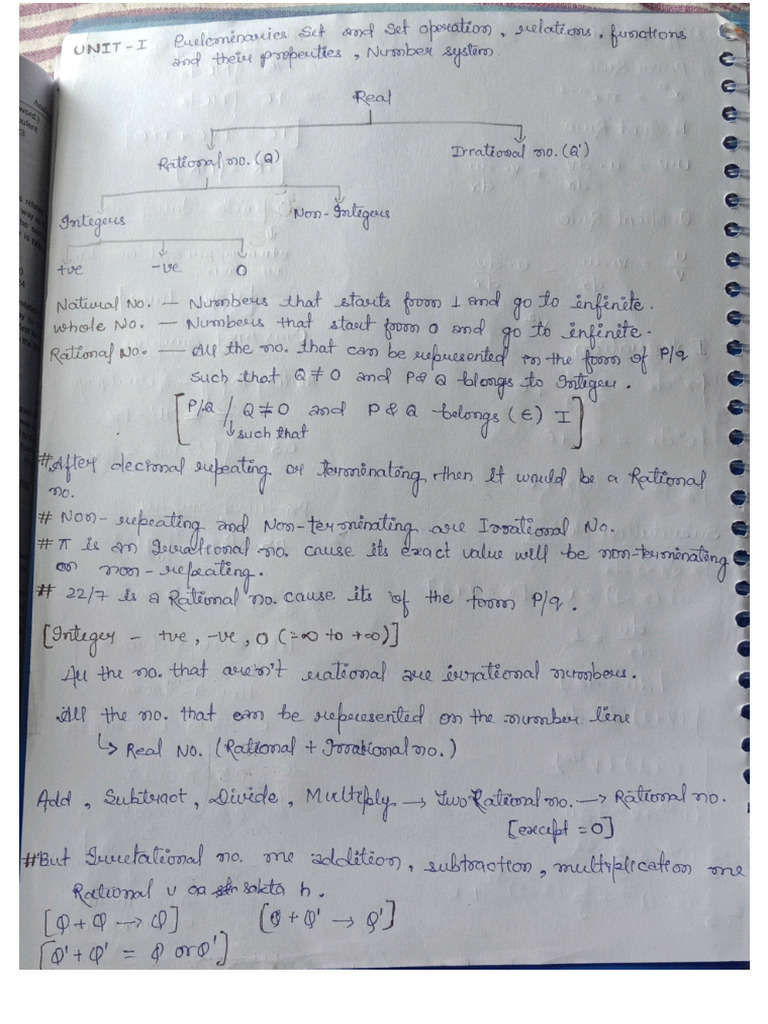 UNIT-I Prelominaries Set and Set operation, relations, functions
and their properties, Number system
Real
Rational no. (Q) Irrational no. (Q')
Integers Non-Integers
+ve -ve 0
Natural No. — Numbers that starts form 1 and go to infinite.
Whole No. — Numbers that start form 0 and go to infinite.
Rational No. — All the no. that can be represented in the form of P/q
such that Q ≠ 0 and P & Q blongs to Integer.
[P/Q / Q ≠ 0 and P & Q belongs (∈) I]
↳ such that
# After decimal repeating or terminating then it would be a Rational
no.
# Non-repeating and Non-terminating are Irrational No.
# π is an Irrational no. cause its exact value will be non-terminating
or non-repeating.
# 22/7 is a Rational no. cause its of the form P/q.
[Integer - +ve, -ve, 0 (-∞ to +∞)]
All the no. that aren't rational are irrational numbers.
All the no. that can be represented on the number line
↳ Real No. (Rational + Irrational no.)
Add, Subtract, Divide, Multiply → Two Rational no. → Rational no.
[except = 0]
# But Irretational no. me addition, subtraction, multiplication me
Rational v aa sakta h.
[Q + Q → Q] [Q + Q' → Q']
[Q' + Q' = Q or Q']